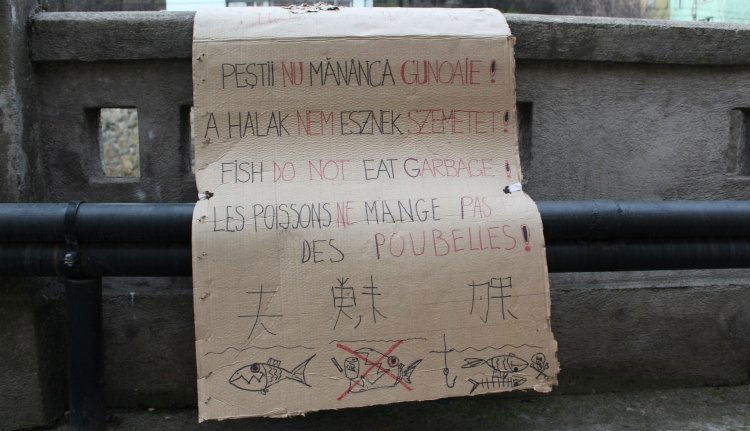 PEȘTII NU MĂNANCĂ GUNOAIE!
A HALAK NEM ESZNEK SZEMETET!
FISH DO NOT EAT GARBAGE!
LES POISSONS NE MANGE PAS
DES POUBELLES!